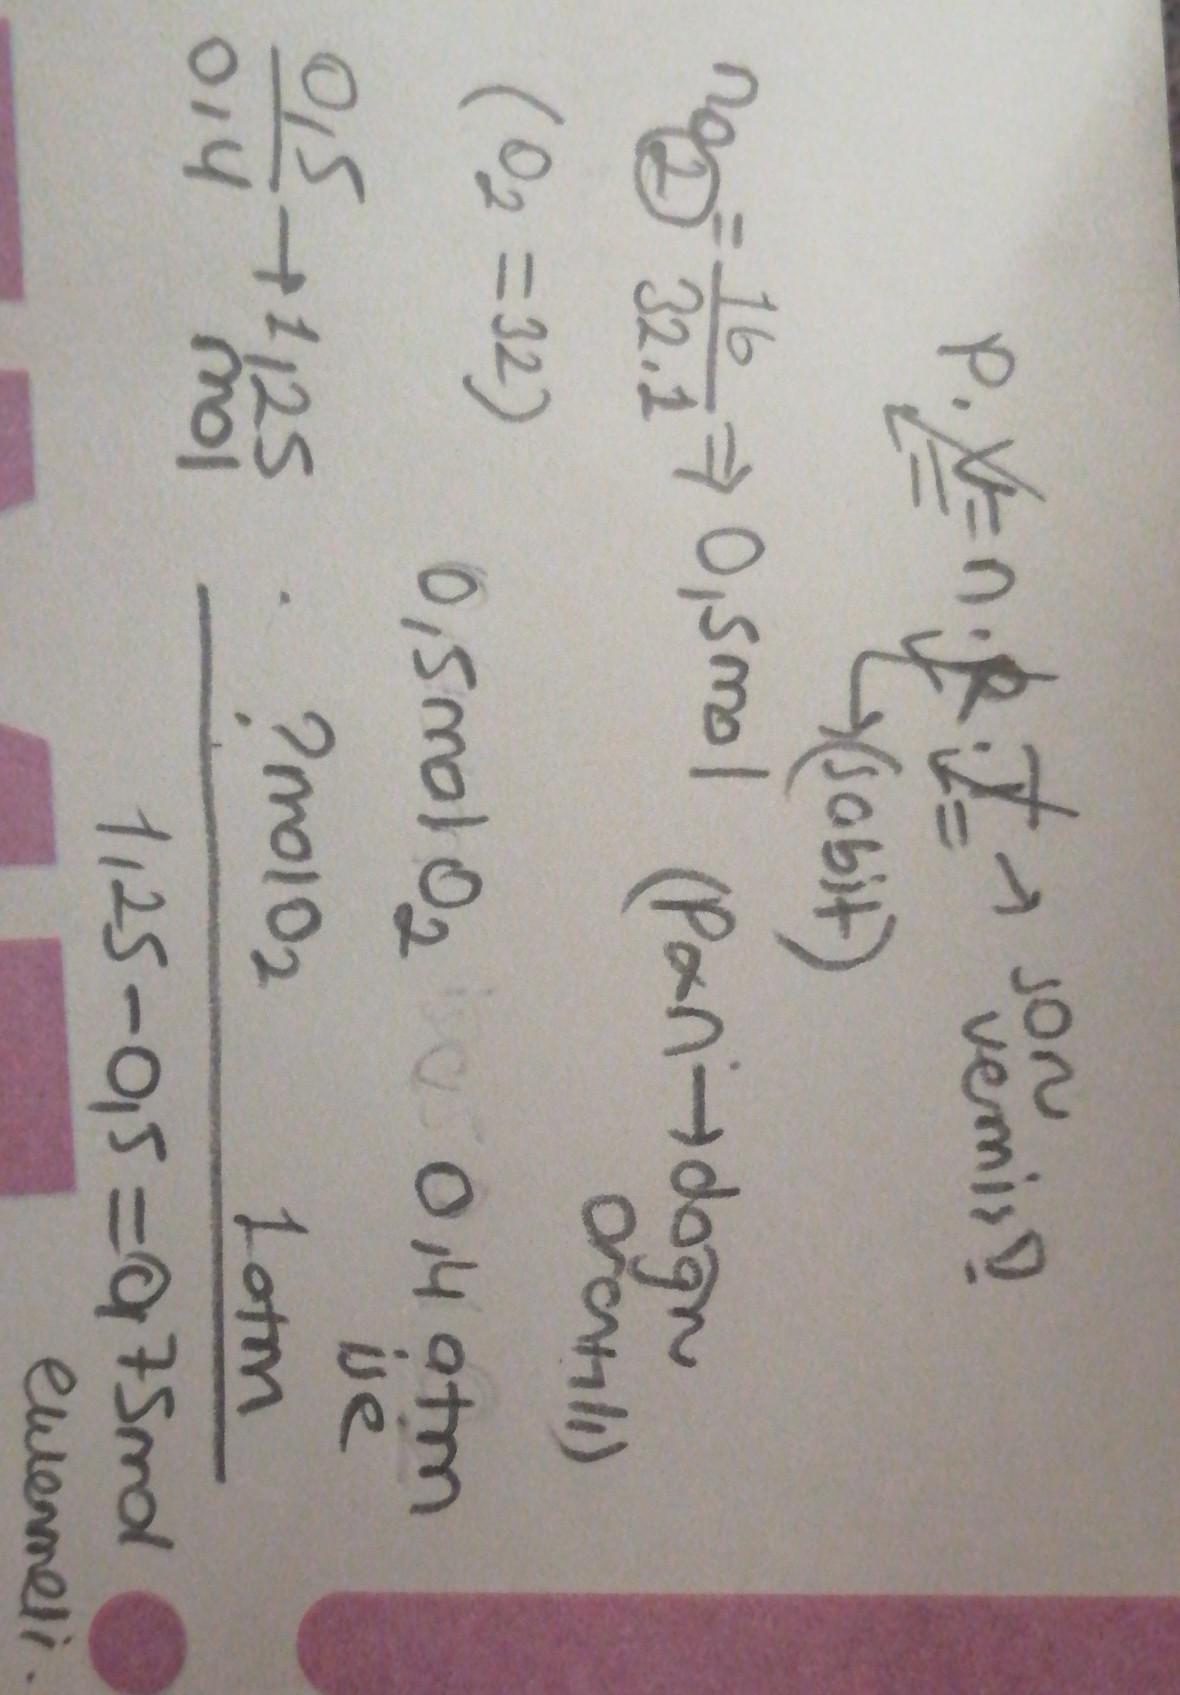 P.V=n.R.T → son vermiş?
(sabit)
nO2 = 16/32.1 ⇒ 0,5 mol (Pαn → doğru orantılı)
(O2 = 32)
0,5 mol O2 0,4 atm
ise
? mol O2 1 atm
0,5/0,4 → 1,25 mol
1,25 - 0,5 = 0,75 mol
eklenmeli.